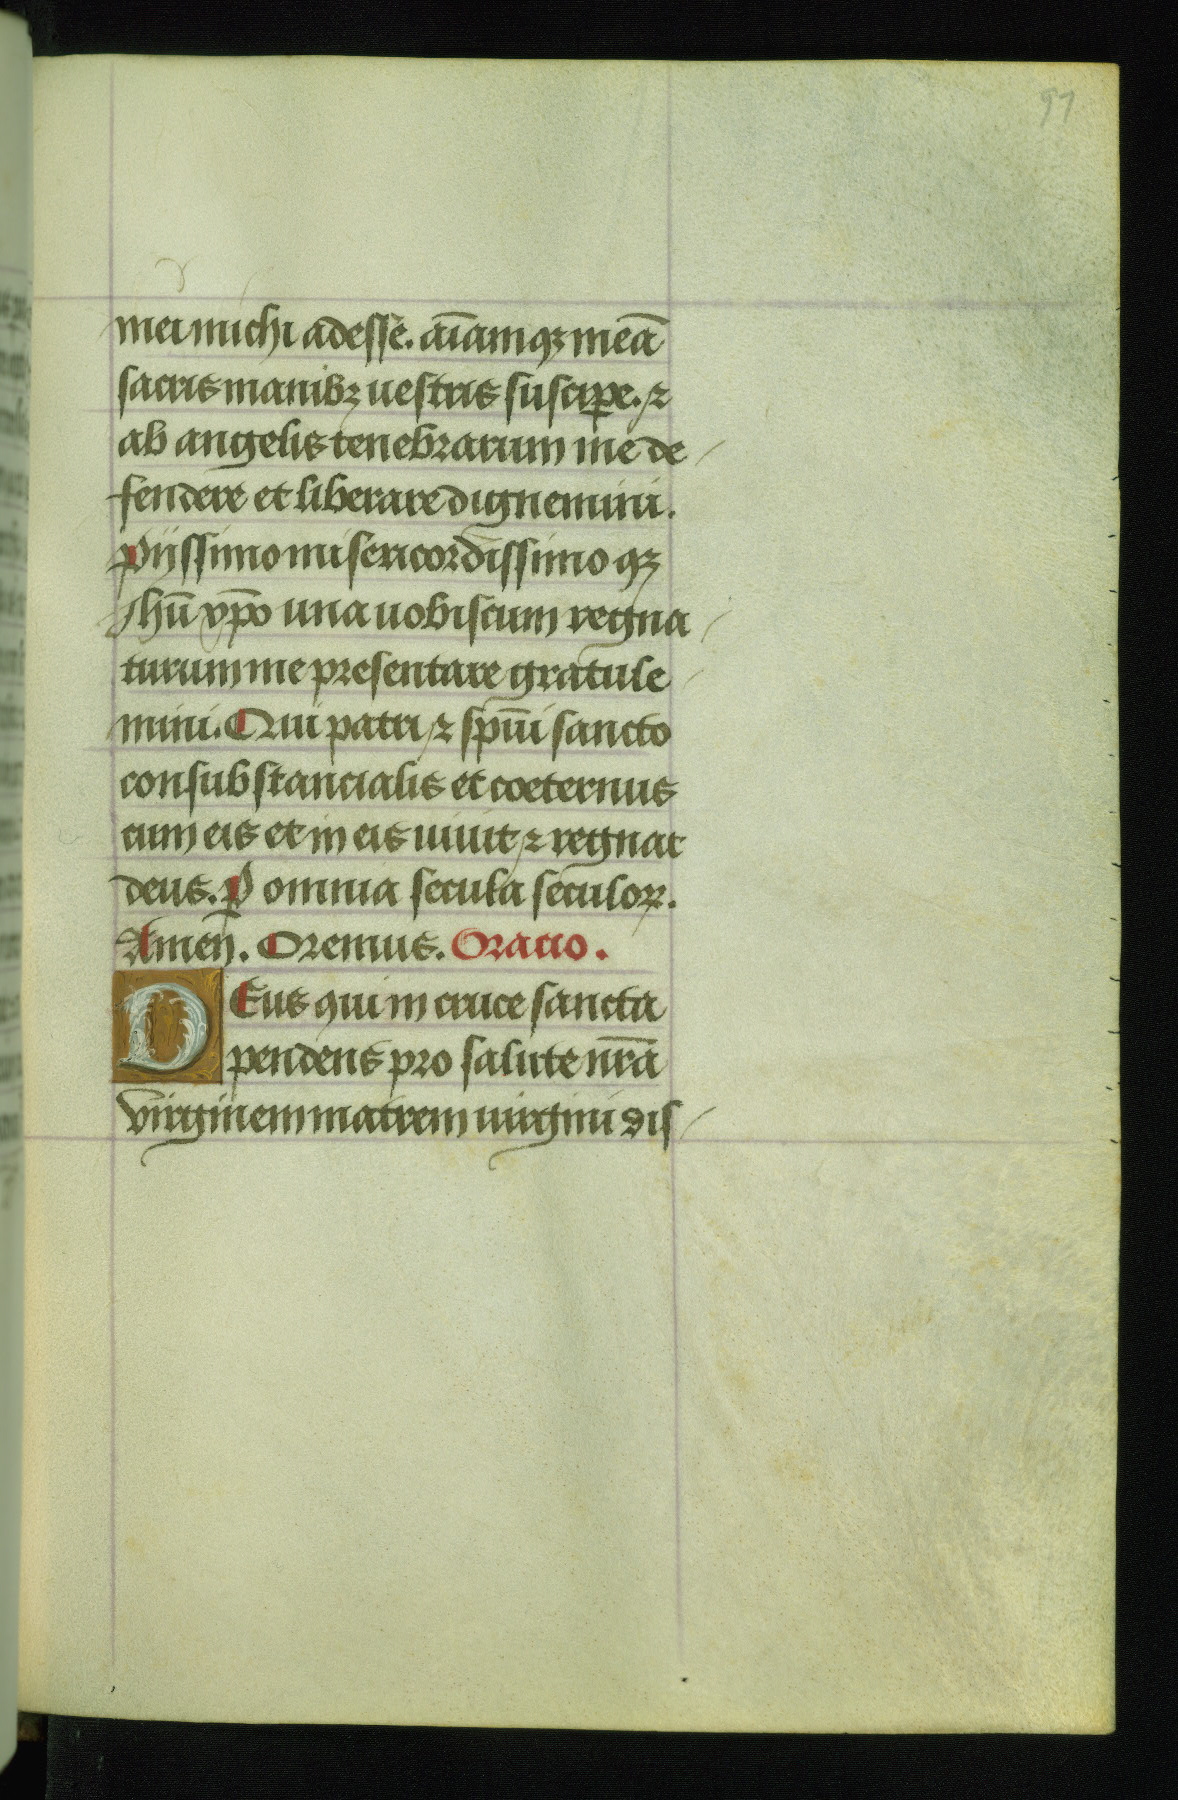 97
mei michi adesse. aīamqꝫ meā
sacris manibꝫ uestris suscipe. ⁊
ab angelis tenebrarum me de
fendere et liberare dignemini.
Pijssimo misericordissimo qꝫ
Jhū xp̄o una uobiscum regna
turum me presentare gratule
mini. Qui patri ⁊ spūi sancto
consubstancialis et coeternus
cum eis et in eis uiuit ⁊ regnat
deus. ꝑ omnia secula seculoꝝ.
Amen. Oremus. Oracio.
DEus qui in cruce sancta
pendens pro salute nr̄a
virginem matrem uirgini dis